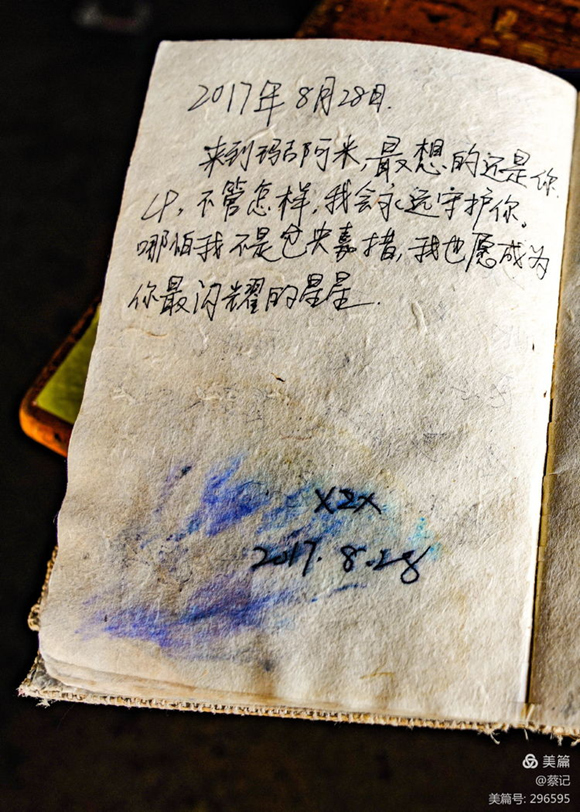 2017年8月28日.
来到玛吉阿米,最想的还是你.
LP,不管怎样,我会永远守护你。
哪怕我不是仓央嘉措,我也愿成为
你最闪耀的星星.
XZX
2017.8.28
美篇
@蔡记
美篇号: 296595